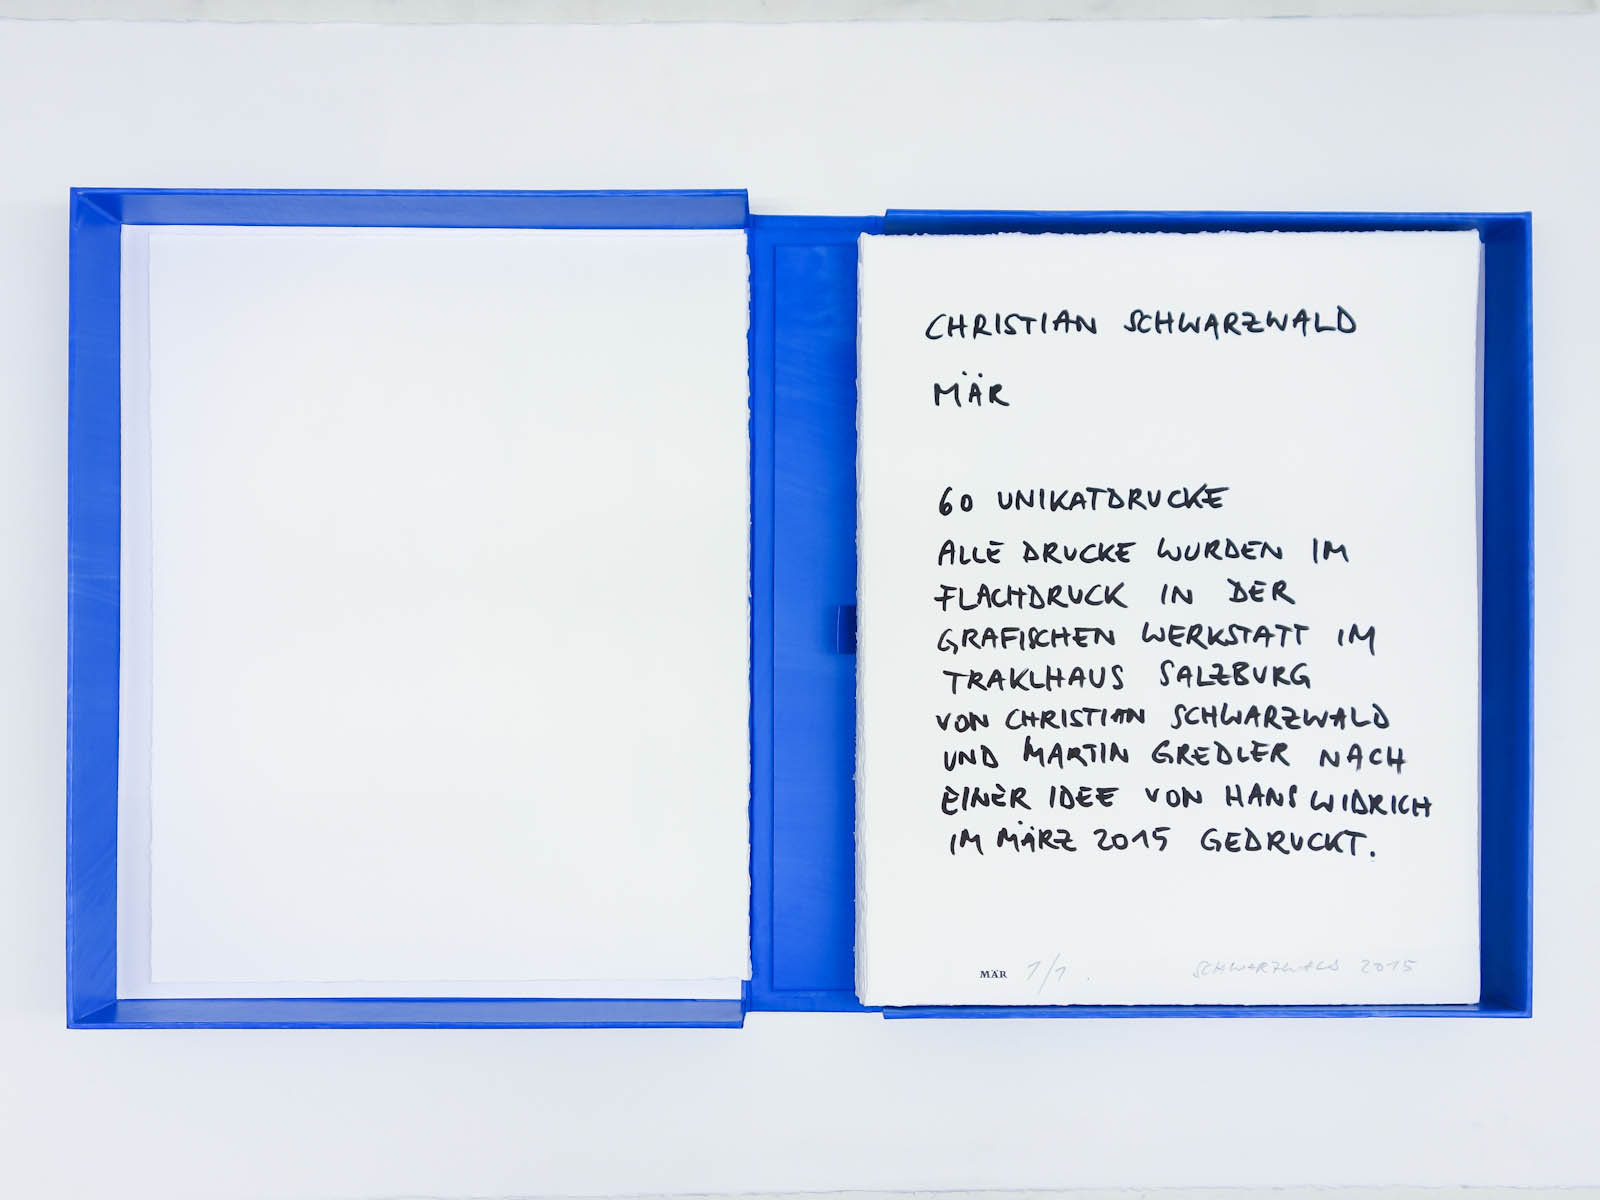 CHRISTIAN SCHWARZWALD
MÄR
60 UNIKATDRUCKE
ALLE DRUCKE WURDEN IM
FLACHDRUCK IN DER
GRAFISCHEN WERKSTATT IM
TRAKLHAUS SALZBURG
VON CHRISTIAN SCHWARZWALD
UND MARTIN GREDLER NACH
EINER IDEE VON HANS WIDRICH
IM MÄRZ 2015 GEDRUCKT.
MÄR 1/1. SCHWARZWALD 2015